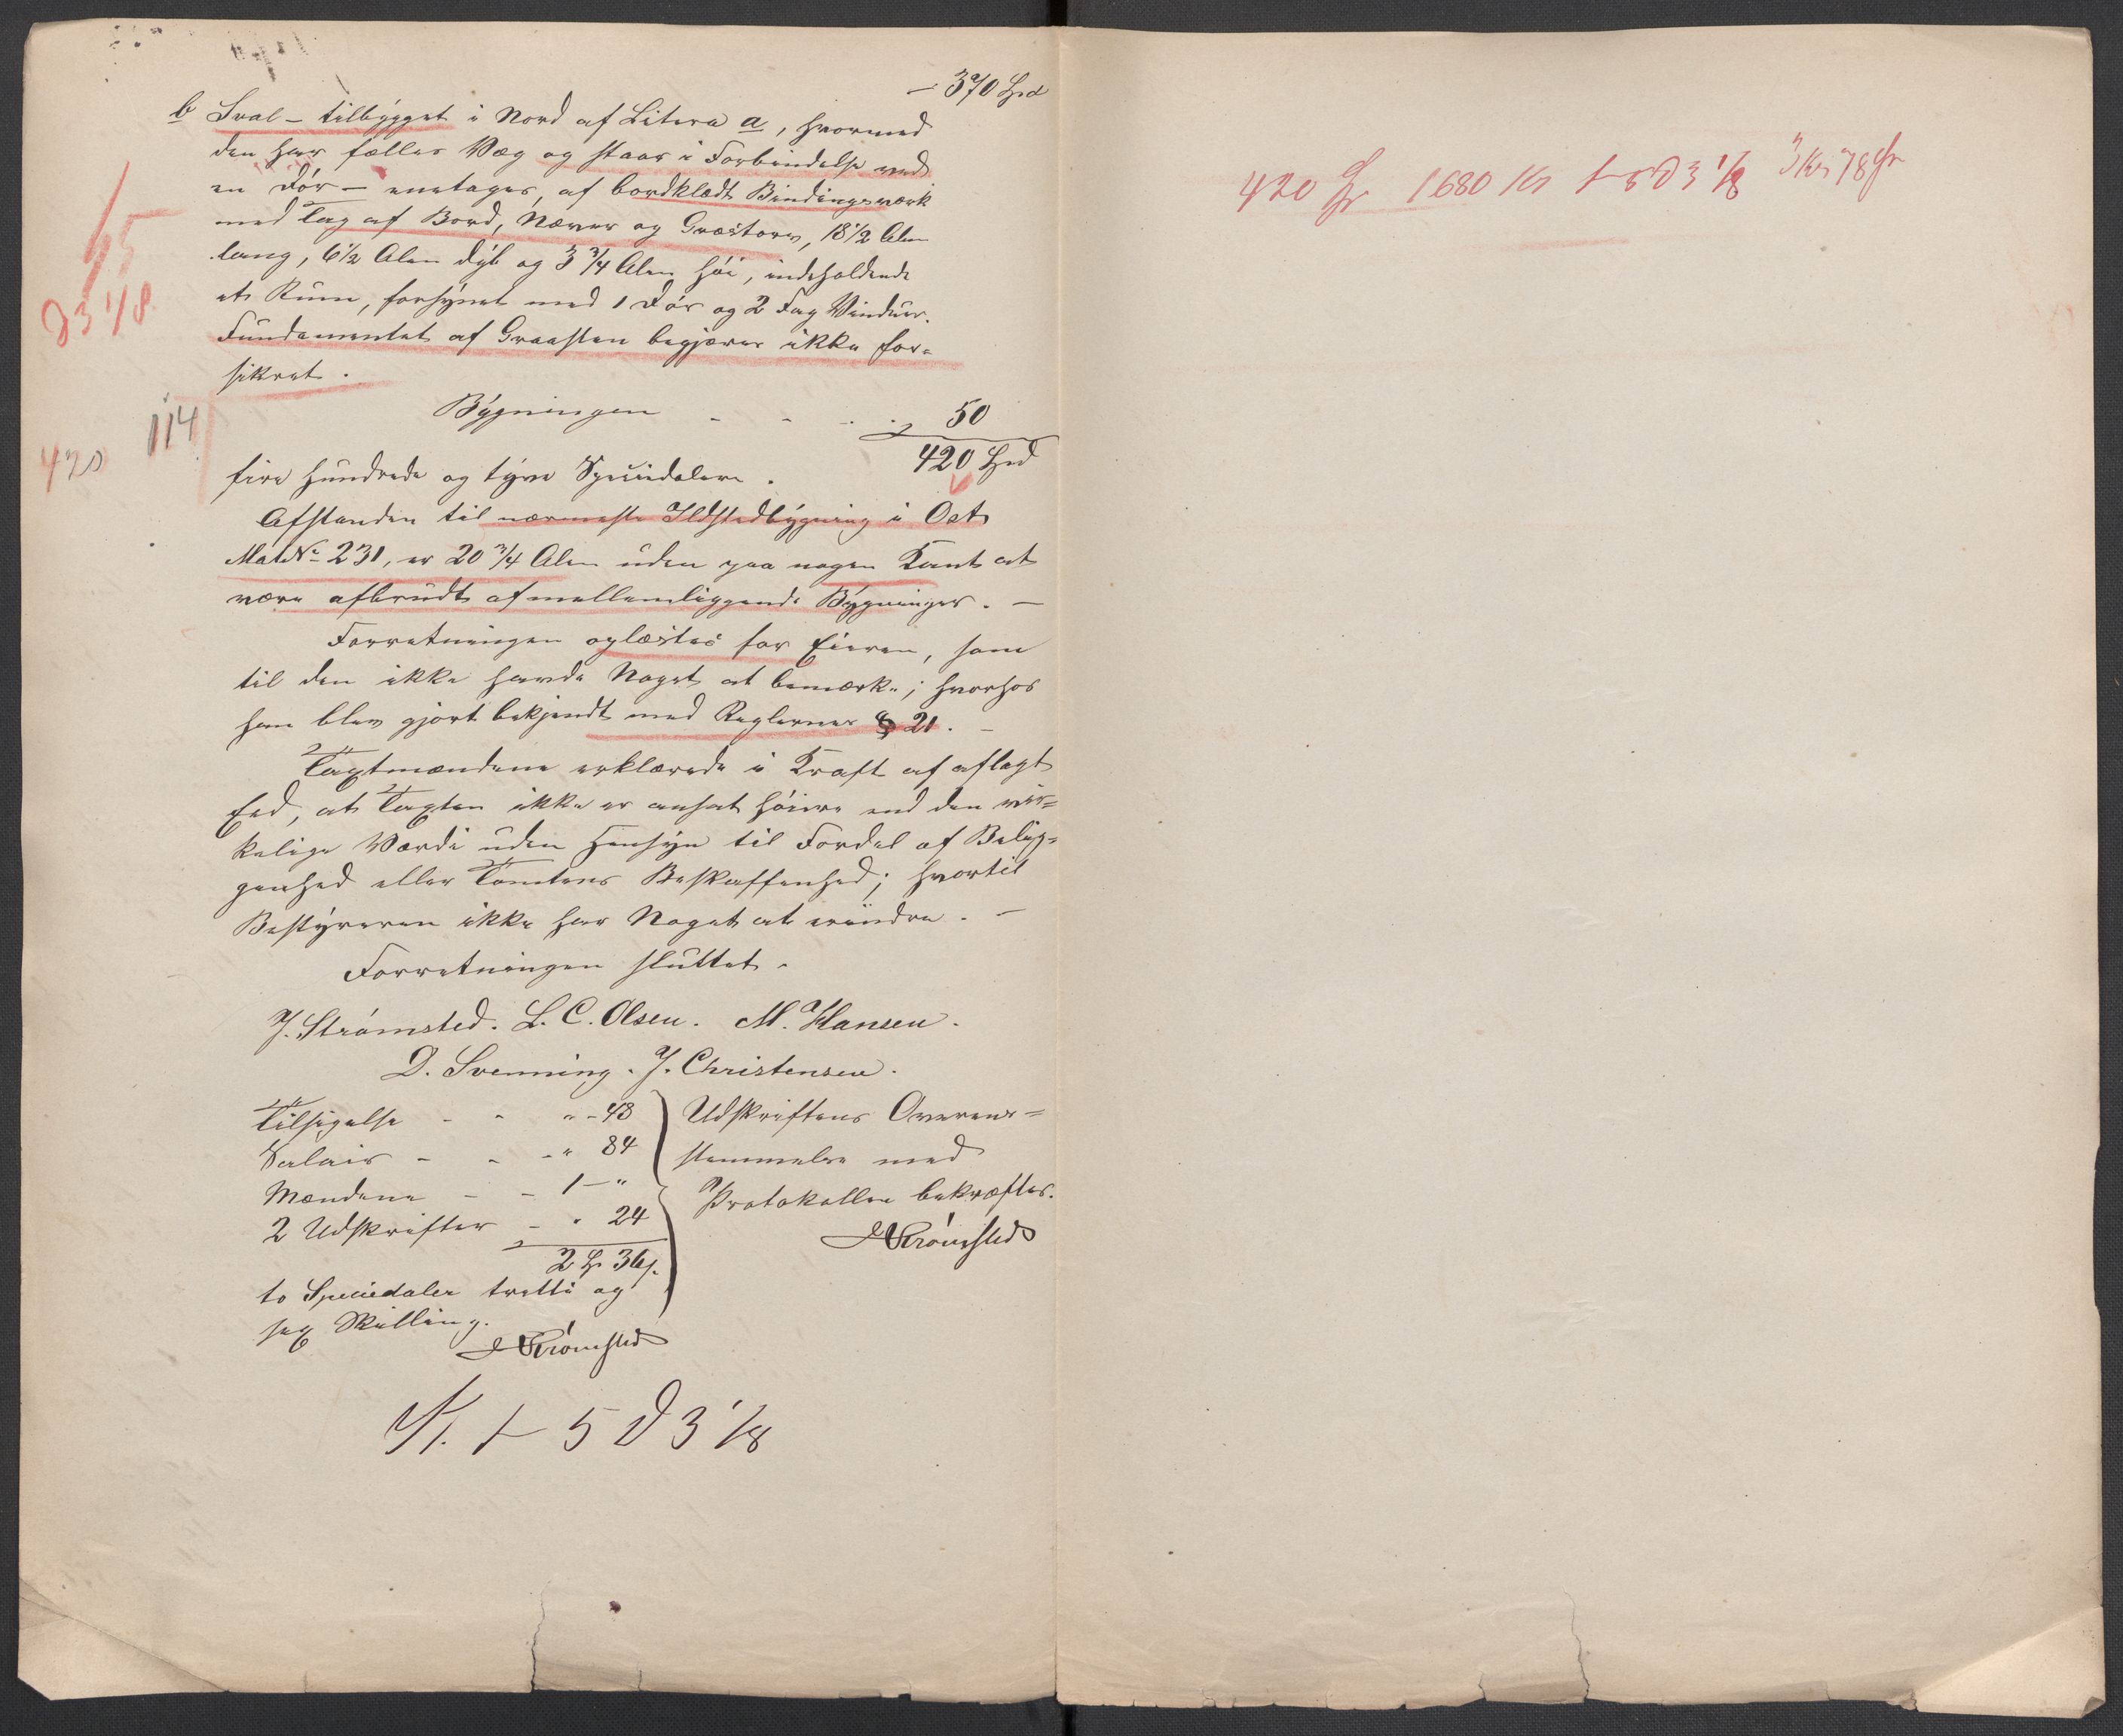 - 370 Spd
b Sval - tilbygget i Nord af Litera a, hvormed
den har fælles Væg og staar i Forbindelse ved
en Dör - enetages, af bordklædt Bindingsværk
med Tag af Bord, Næver og Græstorv, 18 1/2 Alen
lang, 6 1/2 Alen dyb og 3 3/4 Alen höi, indeholdende
et Rum, forsynet med 1 Dör og 2 Fag Vinduer.
Fundamentet af Graasten begjæres ikke for=
sikret.
5
d 3 1/8
Bygningen - - - 50
114
420
420 Spd
fire hundrede og tyve Speciedaler.
Afstanden til nærmeste Ildstedbygning i Ost
Mat No 231, er 20 3/4 Alen uden paa nogen Kant at
være afbrudt af mellemliggende Bygninger. -
Forretningen oplæstes for Eieren, som
til den ikke havde Noget at bemærke; hvorhos
han blev gjort bekjendt med Reglernes § 21. -
Taxtmændene erklærede i Kraft af aflagt
Eed, at Taxten ikke er ansat höiere end den vir=
kelige Værdi uden Hensyn til Fordel af Belig=
genhed eller Tomtens Beskaffenhed; hvortil
Bestyreren ikke har Noget at erindre. -
Forretningen sluttet.
J. Strömsted. L. C. Olsen. M. Hansen.
D. Svenning. J. Christensen.
Tilsigelse - - " - 48
Salair - - - " 84
Mændene - - 1 - "
2 Udskrifter - " 24
2 Sp 36 s.
to Speciedaler tretti og
sex Skilling.
JStrömsted
Udskriftens Overens=
stemmelse med
Protokollen bekræftes.
JStrömsted
5 d 3 1/8
420 Sp 1680 Kr 5 d 3 1/8 3 Kr 78 Ør